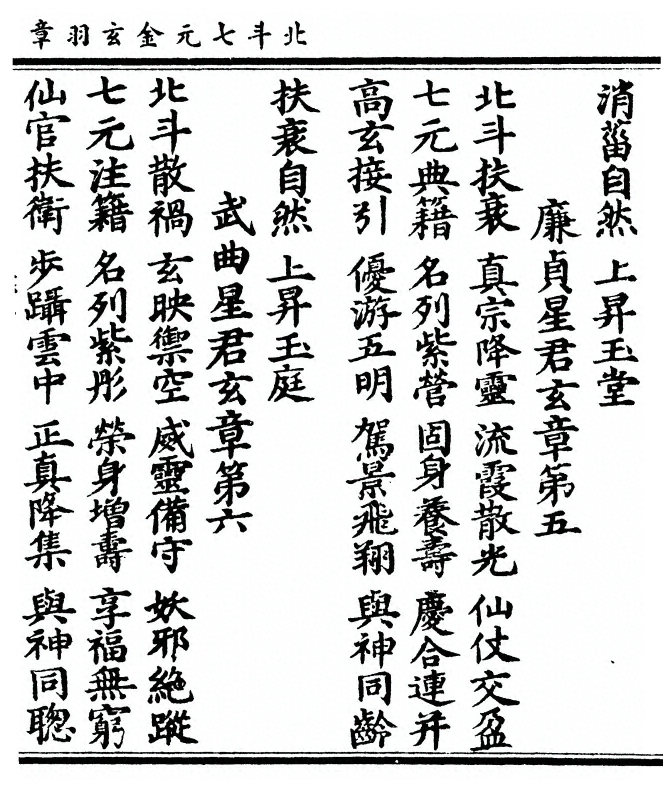 北斗七元金玄羽章
消葘自然　上昇玉堂
廉貞星君玄章第五
北斗扶衰　真宗降靈　流霞散光　仙仗交盈
七元典籍　名列紫營　固身養壽　慶合連并
高玄接引　優游五明　駕景飛翔　與神同齡
扶衰自然　上昇玉庭
武曲星君玄章第六
北斗散禍　玄映禦空　威靈備守　妖邪絶蹤
七元注籍　名列紫彤　榮身增壽　享福無窮
仙官扶衛　步躡雲中　正真降集　與神同聦